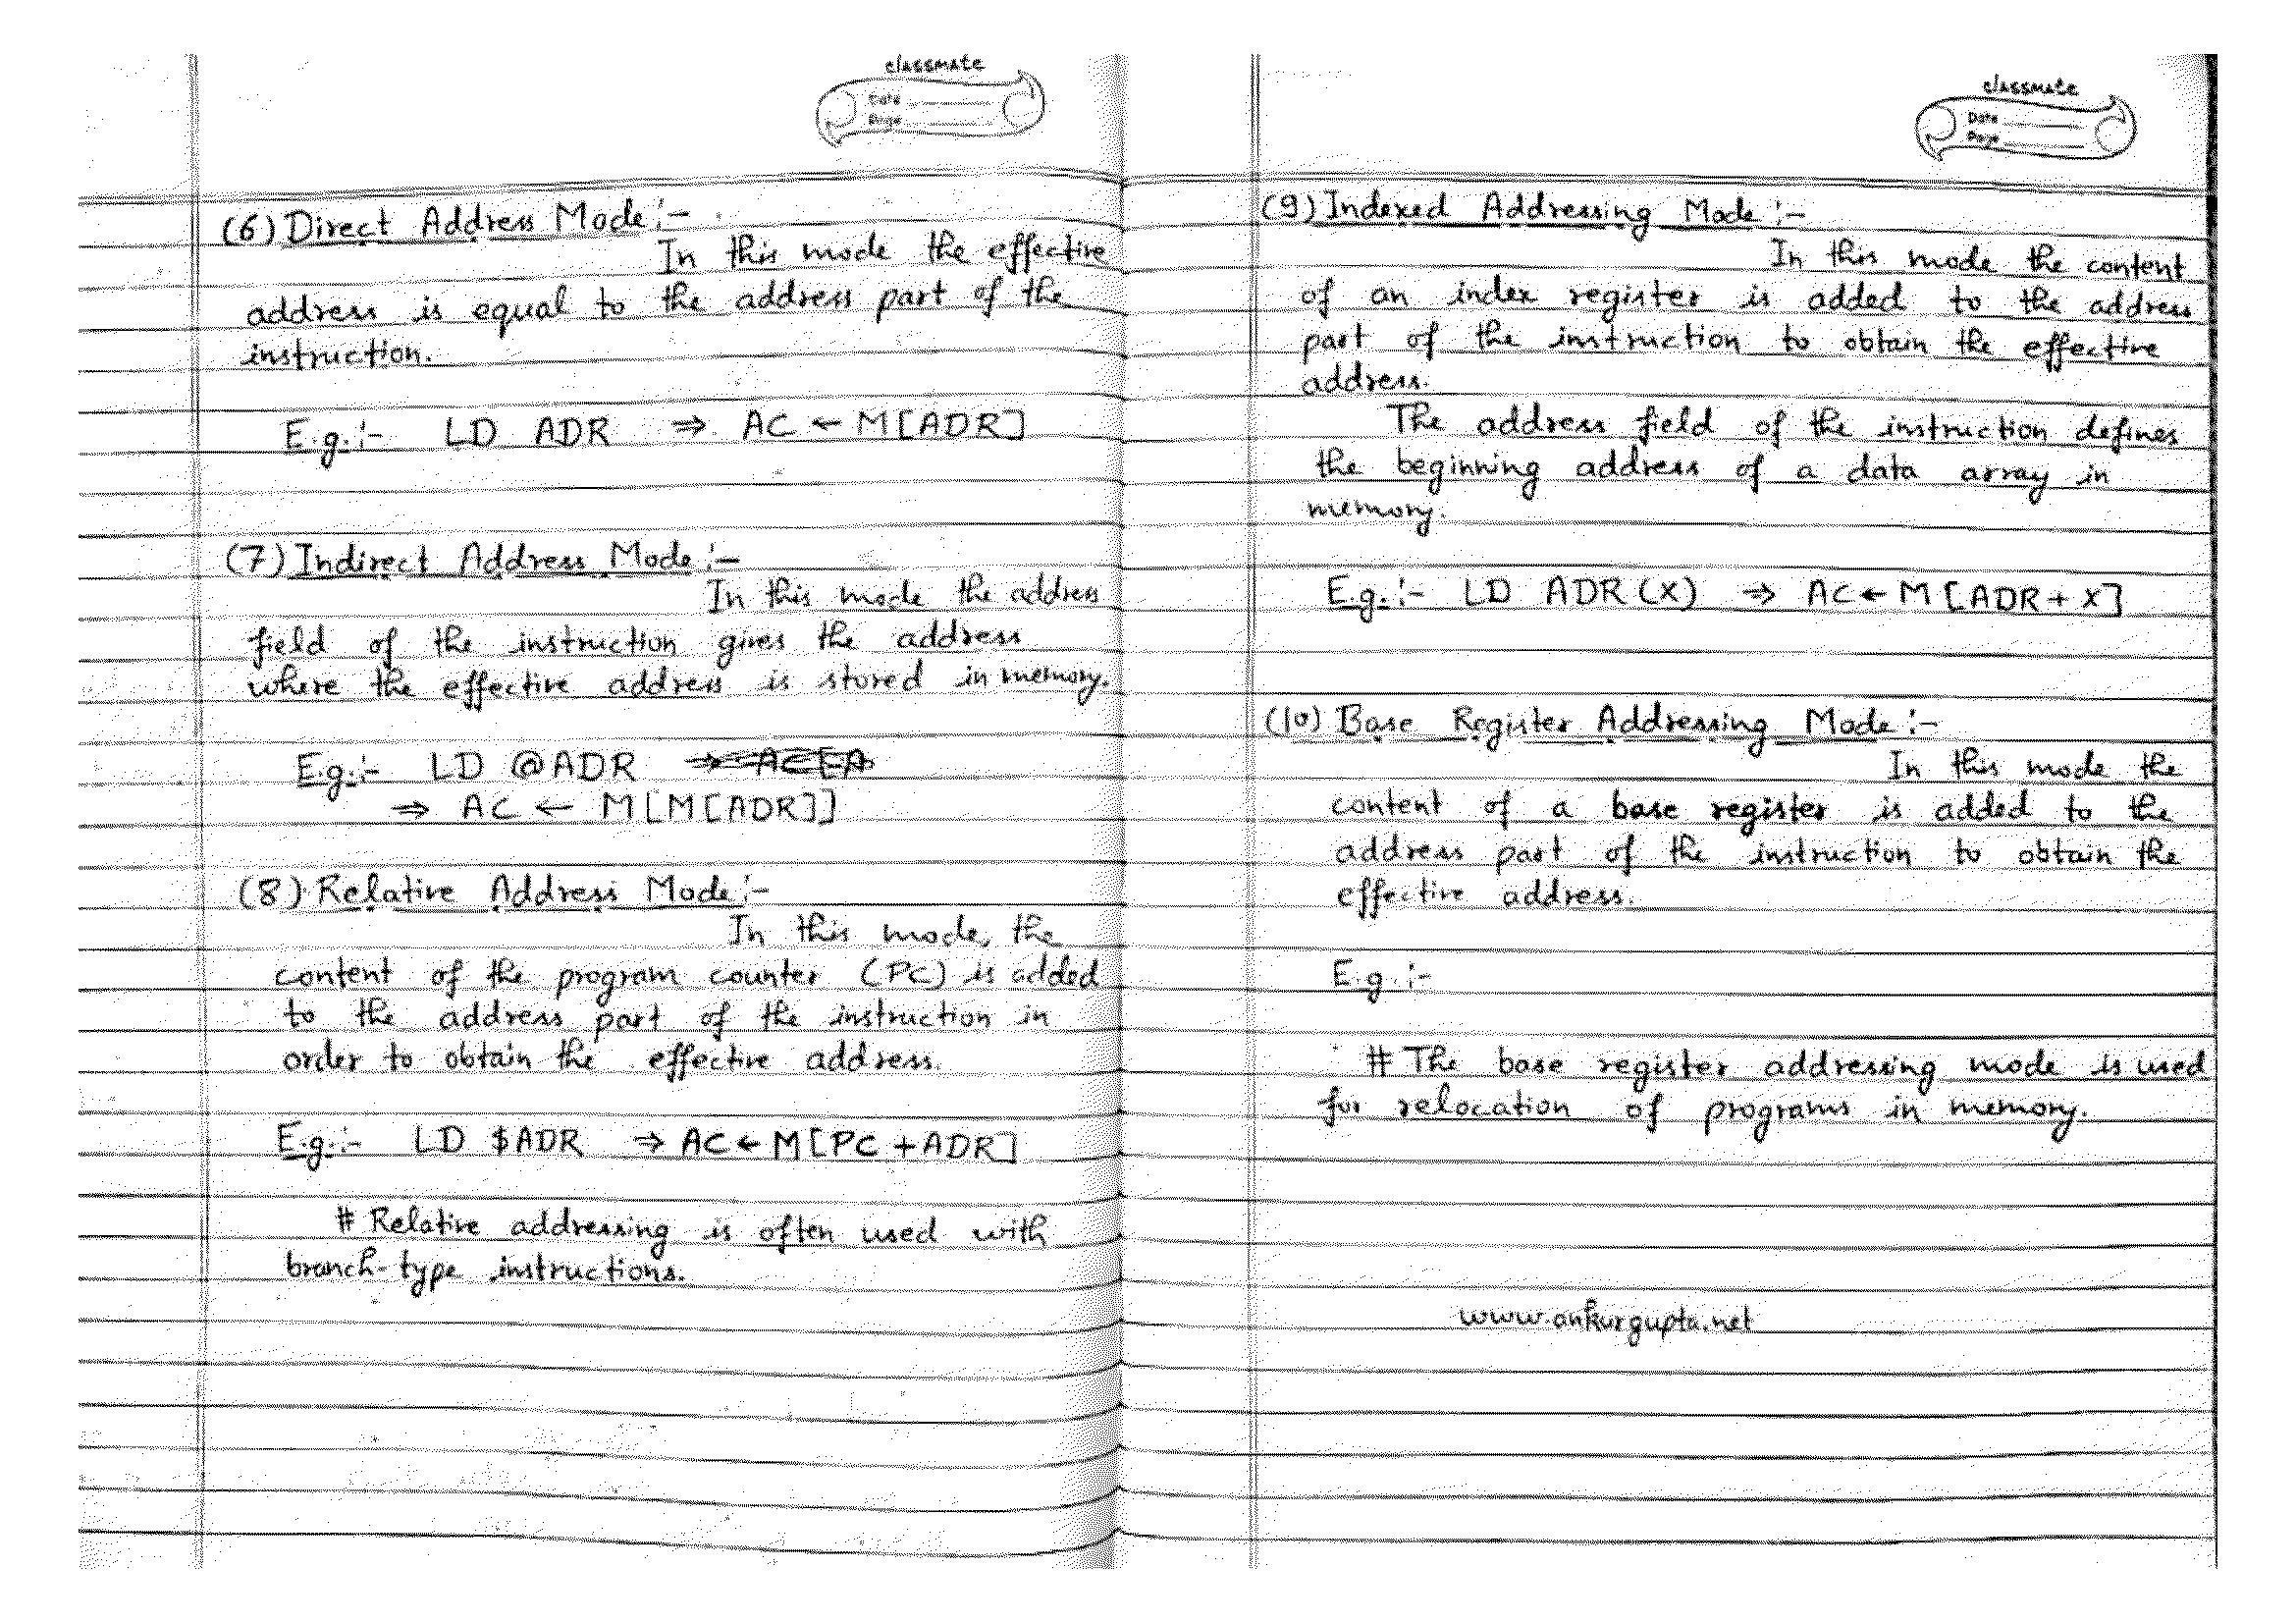 classmate
Date
Page
(6) Direct Address Mode :-
In this mode the effective
address is equal to the address part of the
instruction.
E.g. :- LD ADR ⇒ AC ← M[ADR]
(7) Indirect Address Mode :-
In this mode the address
field of the instruction gives the address
where the effective address is stored in memory.
E.g. :- LD @ADR
⇒ AC ← M[M[ADR]]
(8) Relative Address Mode :-
In this mode, the
content of the program counter (PC) is added
to the address part of the instruction in
order to obtain the effective address.
E.g. :- LD $ADR ⇒ AC ← M[PC + ADR]
# Relative addressing is often used with
branch-type instructions.
classmate
Date
Page
(9) Indexed Addressing Mode :-
In this mode the content
of an index register is added to the address
part of the instruction to obtain the effective
address.
The address field of the instruction defines
the beginning address of a data array in
memory.
E.g. :- LD ADR(X) ⇒ AC ← M[ADR + X]
(10) Base Register Addressing Mode :-
In this mode the
content of a base register is added to the
address part of the instruction to obtain the
effective address.
E.g :-
# The base register addressing mode is used
for relocation of programs in memory.
www.ankurgupta.net